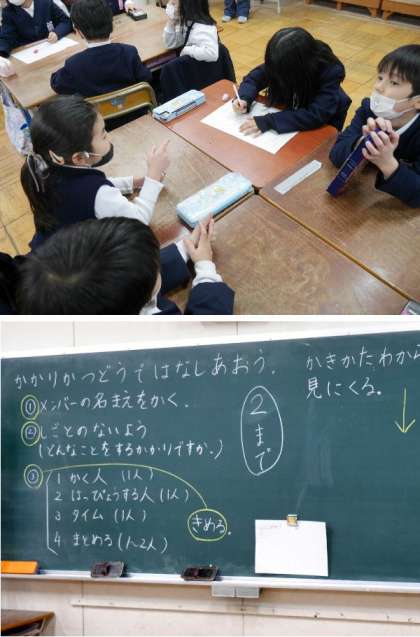 かかりかつどうではなしあおう。
① メンバーの名まえをかく。
② しごとのないよう
(どんなことをするかかりですか。)
③
1 かく人 (1人)
2 はっぴょうする人 (1人)
3 タイム (1人)
4 まとめる (1~2人)
きめる。
2まで
かきかたわから
見にくる。